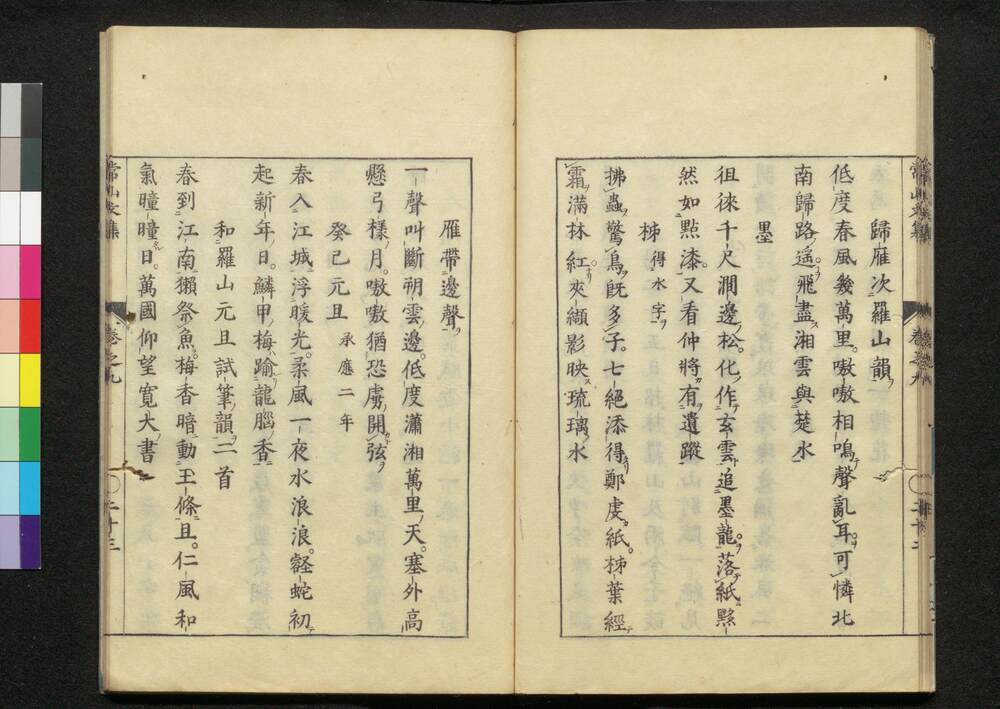 歸雁次羅山韻
低度春風幾萬里嗷嗷相鳴聲亂耳可憐北
南歸路遙飛盡湘雲與楚水
墨
徂徠千尺澗邊松化作玄雲追墨龍落紙黟
然如點漆又看仲將有遺蹤
柹 得水字
拂蟲驚鳥旣多子七絕添得鄭虔紙柹葉經
霜滿林紅夾纈影映琉璃水
常山文集 卷之九 二十三
雁帶邊聲
一聲叫斷朔雲邊低度瀟湘萬里天塞外高
懸弓樣月嗷嗷猶恐虜開弦
癸巳元旦 承應二年
春入江城浮暖光柔風一夜水浪浪谿蛇初
起新年日鱗甲梅踰龍腦香
和羅山元旦試筆韻二首
春到江南獺祭魚梅香暗動王條且仁風和
氣曈曈日萬國仰望寬大書